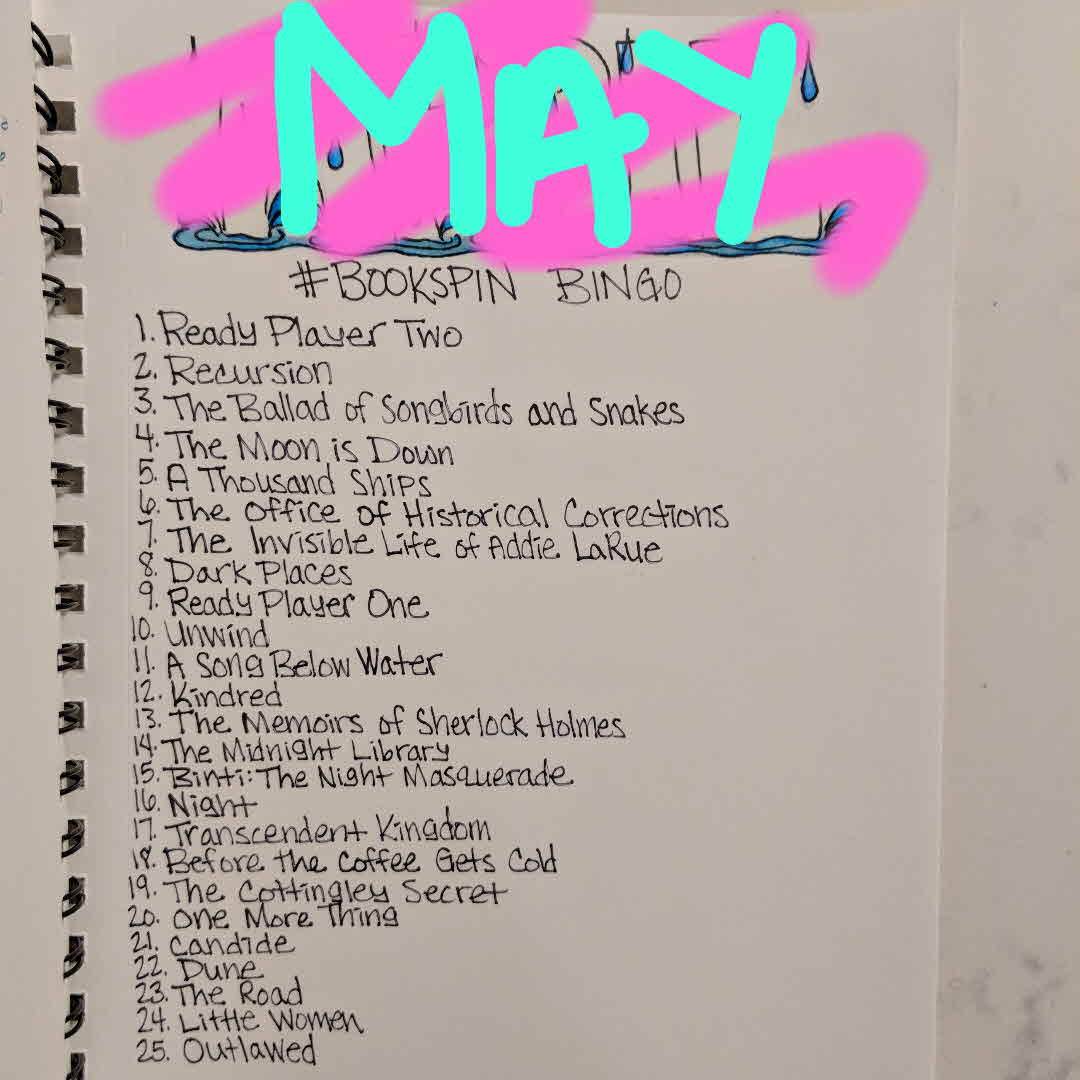 MAY
#BOOKSPIN BINGO
1. Ready Player Two
2. Recursion
3. The Ballad of Songbirds and Snakes
4. The Moon is Down
5. A Thousand Ships
6. The Office of Historical Corrections
7. The Invisible Life of Addie LaRue
8. Dark Places
9. Ready Player One
10. Unwind
11. A Song Below Water
12. Kindred
13. The Memoirs of Sherlock Holmes
14. The Midnight Library
15. Binti: The Night Masquerade
16. Night
17. Transcendent Kingdom
18. Before the Coffee Gets Cold
19. The Cottingley Secret
20. One More Thing
21. Candide
22. Dune
23. The Road
24. Little Women
25. Outlawed